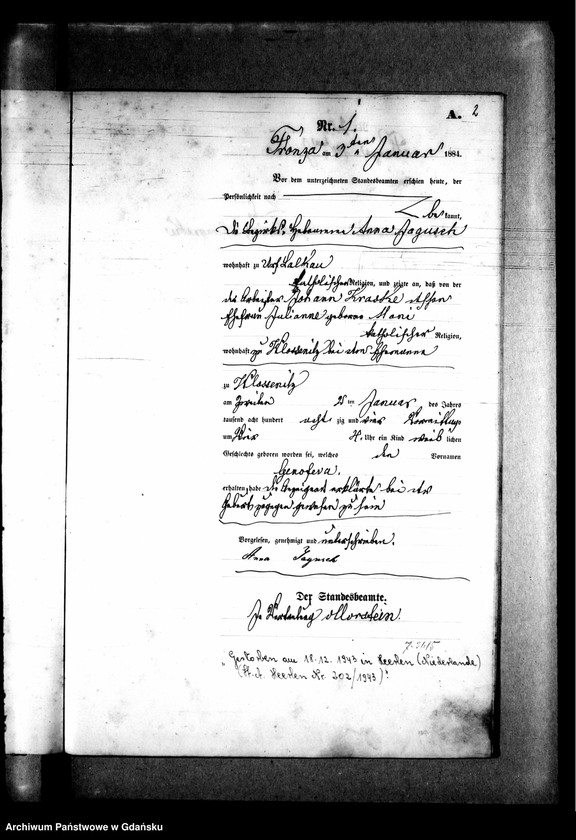 A. 2
Nr. 1.
Fronza am 3ten Januar 1884.
Vor dem unterzeichneten Standesbeamten erschien heute, der
Persönlichkeit nach
be kannt,
die Bezirks Hebamme Anna Jagusch
wohnhaft zu
katholischer Religion, und zeigte an, daß von der
des Arbeiter Johann Kraske
Ehefrau Julianne geborne
katholischer Religion,
wohnhaft zu Klossenitz bei dem Ehemanne
zu Klossenitz
am zweiten 2ten Januar des Jahres
tausend acht hundert achtzig und vier Vormittags
um vier 4. Uhr ein Kind weib lichen
Geschlechts geboren worden sei, welches den Vornamen
Genofeva.
erhalten habe die Anzeigerin erklärte bei der
Geburt zugegen gewesen zu sein
Vorgelesen, genehmigt und unterschrieben.
Anna Jagusch
Der Standesbeamte.
In Vertretung
„Gestorben am 18.12.1943 in Heerlen (Niederlande)
(St.A. Heerlen Nr. 202/1943)!
Archiwum Państwowe w Gdańsku